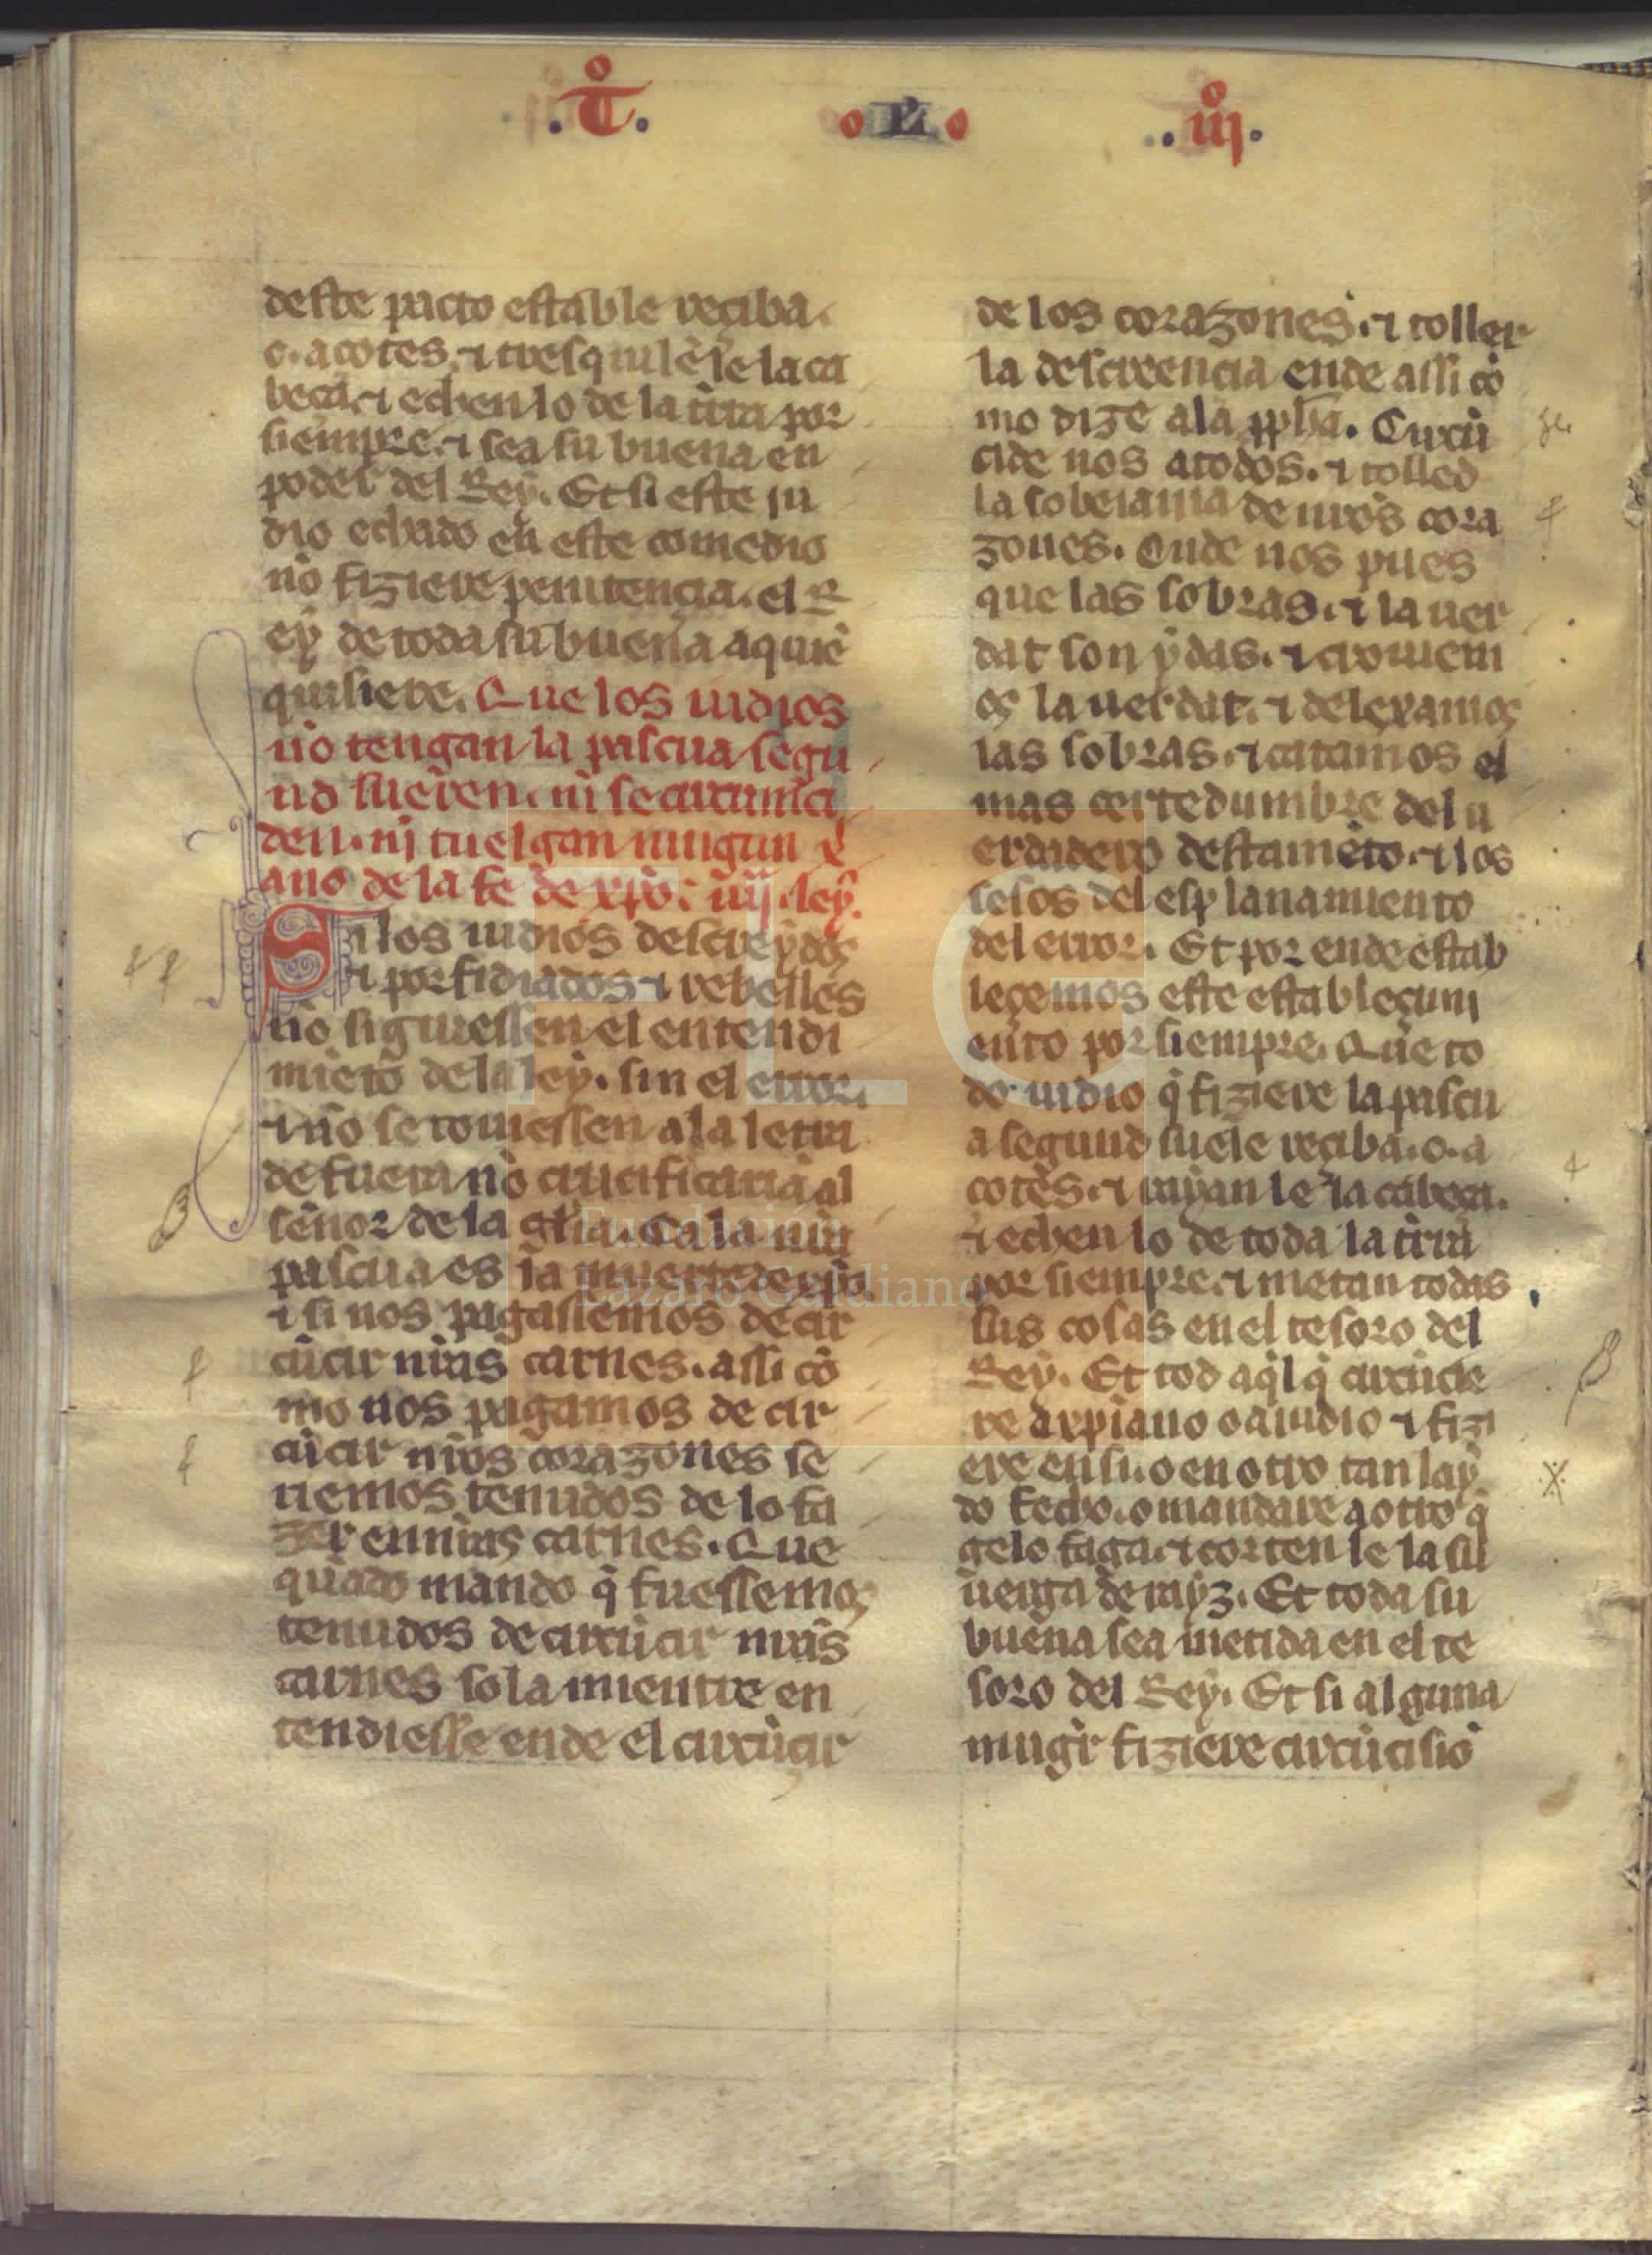 .T͠o.
o L o
.iijº.
deste pacto estable reçiba.
c. açotes. ⁊ tresquilẽ le la ca
beça. ⁊ echen lo de la tr̃ra por
siempre. ⁊ sea su buena en
poder del Rey. Et si este iu
dio echado en este comedio
nõ fiziere penitençia. el R
ey de toda su buena a quiẽ
quisiere. Que los iudios
nõ tengan la pascua segu
nd sueien. ni se circunci
den. nj tuelgan ningun xp̃i
ano de la fe de xp̃o. iiij ley.
Si los iudios descreydos
⁊ porfidiados ⁊ rebelles
nõ siguiessen el entendi
miẽto de la ley. sin el error.
⁊ nõ se touiessen a la letra
de fuera nõ crucificariã al
señor de la gl̃ia. Ca la nr̃a
pascua es la muerte de xp̃o
⁊ si nos pagassemos de cir
cũcir nr̃as carnes. assi cõ
mo nos pagamos de cir
cũcir nr̃os corazones se
riemos tenudos de lo fa
zer en nr̃as carnes. Que
quãdo mando q̃ fuessemos
tenudos de circũcir nr̃as
carnes sola mientre en
tendiesse ende el circũcir
de los corazones. ⁊ toller
la descreencia ende assi cõ
mo dize a la pp̃ħa. Circũ
cide uos a todos. ⁊ tolled
la soberania de ur̃os cora
zones. Onde nos pues
que las sobras. ⁊ la uer
dat son ydas. ⁊ crouiem
os la uerdat. ⁊ delexamos
las sobras. ⁊ catamos el
mas certedumbre del u
erdadero destamẽto. ⁊ los
sesos del esplanamiento
del error. Et por ende estab
leçemos este estableçimi
ento por siempre. Que to
do iudio q̃ fiziere la pascu
a segund suele reçiba. c. a
çotes. ⁊ rayan le la cabeça.
⁊ echen lo de toda la tr̃ra
por siempre. ⁊ metan todas
sus cosas en el tesoro del
Rey. Et tod aq̃l q̃ circũcie
re a xp̃iano o a iudio ⁊ fizi
ere en si. o en otro tan lay
do fecho. o mandare a otro q̃
gelo faga. ⁊ corten le la su
uerga de rayz. Et toda su
buena sea metida en el te
soro del Rey. Et si alguna
mugr̃ fiziere circũcisiõ
Fundación
Lázaro Galdiano